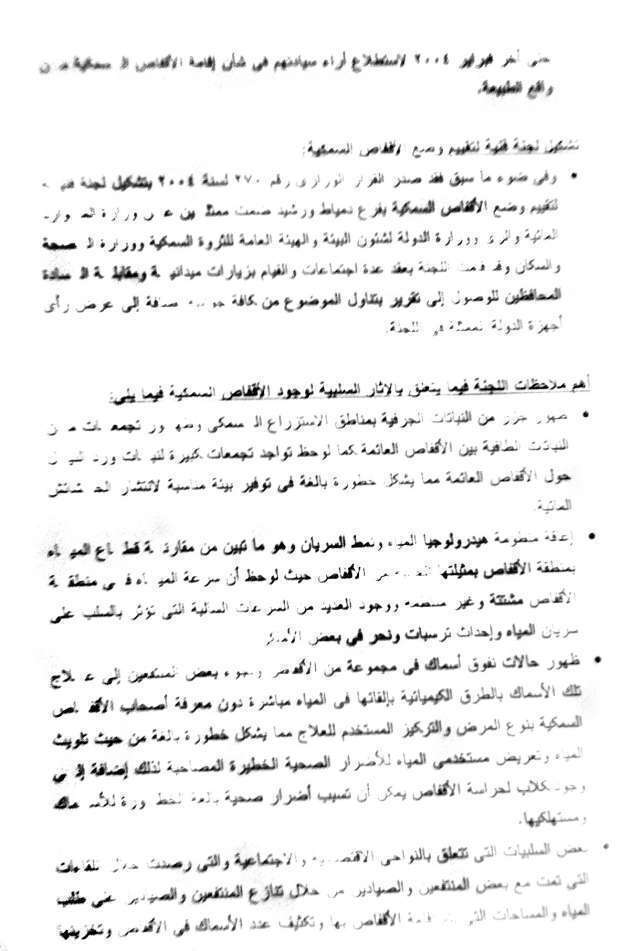 حتى آخر فبراير ٢٠٠٤ لاستطلاع آراء سيادتهم فى شأن إقامة الأقفاص السمكية من
واقع الطبيعة.
تشكيل لجنة فنية لتقييم وضع الأقفاص السمكية:
• وفى ضوء ما سبق فقد صدر القرار الوزارى رقم ٢٧٠ لسنة ٢٠٠٤ بتشكيل لجنة فنية
لتقييم وضع الأقفاص السمكية بفرع دمياط ورشيد ضمت ممثلين عن وزارة الموارد
المائية والرى ووزارة الدولة لشئون البيئة والهيئة العامة للثروة السمكية ووزارة الصحة
والسكان وقد قامت اللجنة بعقد عدة اجتماعات والقيام بزيارات ميدانية ومقابلة السادة
المحافظين للوصول إلى تقرير يتناول الموضوع من كافة إضافة إلى عرض رأى
أجهزة الدولة الممثلة فى اللجنة.
أهم ملاحظات اللجنة فيما يتعلق بالآثار السلبية لوجود الأقفاص السمكية فيما يلى:
• ظهور جزر من النباتات الجرفية بمناطق الاستزراع السمكى وظهور تجمعات من
النباتات الطافية بين الأقفاص العائمة كما لوحظ تواجد تجمعات كبيرة لنبات ورد النيل
حول الأقفاص العائمة مما يشكل خطورة بالغة فى توفير بيئة مناسبة لانتشار الحشائش
المائية.
• إعاقة منظومة هيدرولوجيا المياه ونمط السريان وهو ما تبين من مقارنة قطاع المياه
بمنطقة الأقفاص بمثيلتها الأقفاص حيث لوحظ أن سرعة المياه فى منطقة
الأقفاص مشتتة وغير منتظمة ووجود العديد من السرعات السالبة التى تؤثر بالسلب على
سريان المياه وإحداث ترسبات ونحر فى بعض
• ظهور حالات نفوق أسماك فى مجموعة من الأقفاص ولجوء بعض المنتفعين إلى علاج
تلك الأسماك بالطرق الكيميائية بإلقائها فى المياه مباشرة دون معرفة أصحاب الأقفاص
السمكية بنوع المرض والتركيز المستخدم للعلاج مما يشكل خطورة بالغة من حيث تلويث
المياه وتعريض مستخدمى المياه للأضرار الصحية الخطيرة المصاحبة لذلك إضافة إلى
وجود كلاب لحراسة الأقفاص يمكن أن تسبب أضرار صحية بالغة الخطورة للأسماك
ومستهلكيها.
• بعض السلبيات التى تتعلق بالنواحى الاقتصادية والاجتماعية والتى رصدت خلال اللقاءات
التى تمت مع بعض المنتفعين والصيادين من خلال تنازع المنتفعين والصيادين على طلب
المياه والمساحات إقامة الأقفاص بها وتكثيف عدد الأسماك فى الأقفاص وتخزينها